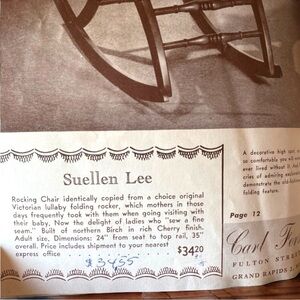 Suellen Lee
Rocking Chair identically copied from a choice original
Victorian lullaby folding rocker, which mothers in those
days frequently took with them when going visiting with
their baby. Now the delight of ladies who "sew a fine
seam." Built of northern Birch in rich Cherry finish.
Adult size, Dimensions: 24" from seat to top rail, 35"
overall. Price includes shipment to your nearest
express office $34.20
$34.55
A decorative high
so comfortable you will
ever lived without it. And
cries of admiring
demonstrate the
folding feature.
Page 12
Carl
FULTON STRE
GRAND RAPIDS 2,